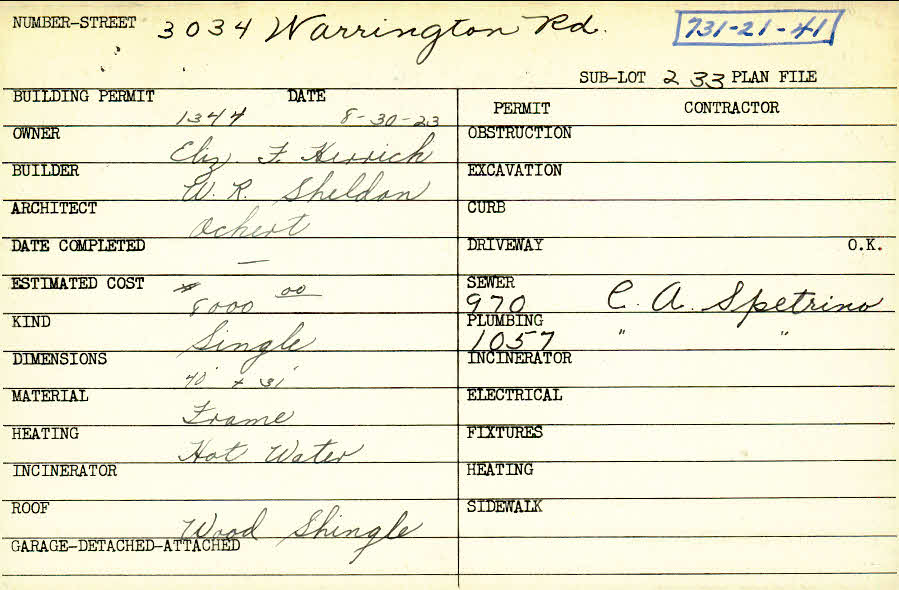 NUMBER-STREET 3034 Warrington Rd. 731-21-41
SUB-LOT 233 PLAN FILE
BUILDING PERMIT 1344 DATE 8-30-23
PERMIT CONTRACTOR
OWNER Eliz. F. Herrick
OBSTRUCTION
BUILDER W. R. Sheldon
EXCAVATION
ARCHITECT Ochert
CURB
DATE COMPLETED —
DRIVEWAY O.K.
ESTIMATED COST $8000 00
SEWER 970 C. A. Spetrino
KIND Single
PLUMBING 1057 " "
DIMENSIONS 40' x 31'
INCINERATOR
MATERIAL Frame
ELECTRICAL
HEATING Hot Water
FIXTURES
INCINERATOR
HEATING
ROOF Wood Shingle
SIDEWALK
GARAGE-DETACHED-ATTACHED